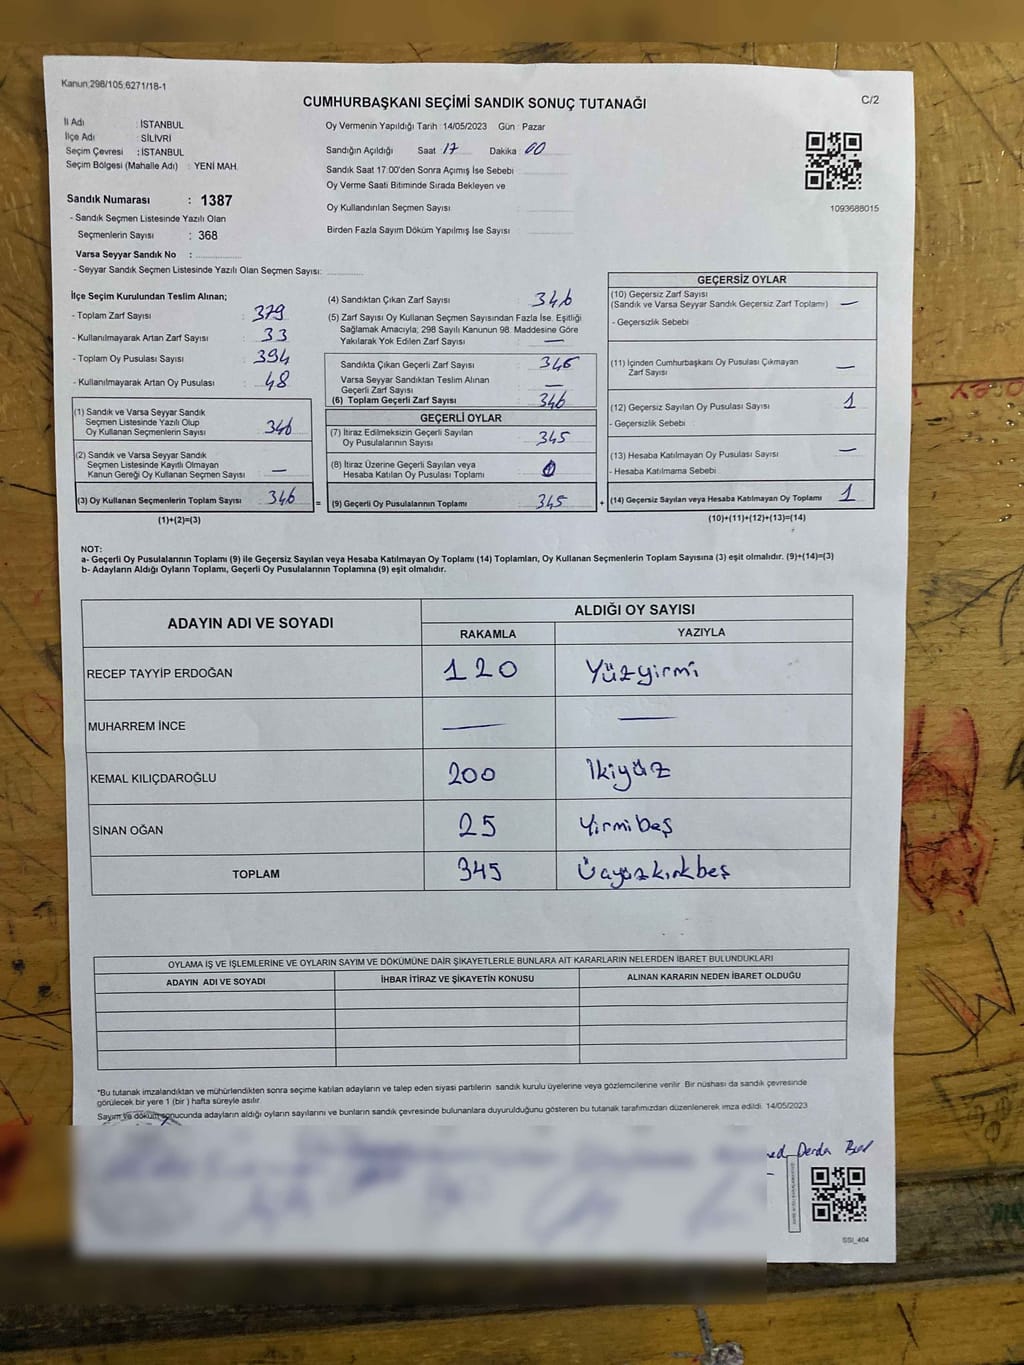 Kanun 298/105,6271/18-1
CUMHURBAŞKANI SEÇİMİ SANDIK SONUÇ TUTANAĞI
C/2
İl Adı : İSTANBUL
İlçe Adı : SİLİVRİ
Seçim Çevresi : İSTANBUL
Seçim Bölgesi (Mahalle Adı) : YENİ MAH.
Sandık Numarası : 1387
- Sandık Seçmen Listesinde Yazılı Olan
Seçmenlerin Sayısı : 368
Varsa Seyyar Sandık No :
- Seyyar Sandık Seçmen Listesinde Yazılı Olan Seçmen Sayısı:
Oy Vermenin Yapıldığı Tarih : 14/05/2023 Gün : Pazar
Sandığın Açıldığı Saat 17 Dakika 00
Sandık Saat 17:00'den Sonra Açımış İse Sebebi :
Oy Verme Saati Bitiminde Sırada Bekleyen ve
Oy Kullandırılan Seçmen Sayısı :
Birden Fazla Sayım Döküm Yapılmış İse Sayısı :
1093688015
İlçe Seçim Kurulundan Teslim Alınan;
- Toplam Zarf Sayısı : 379
- Kullanılmayarak Artan Zarf Sayısı : 33
- Toplam Oy Pusulası Sayısı : 394
- Kullanılmayarak Artan Oy Pusulası : 48
(1) Sandık ve Varsa Seyyar Sandık
Seçmen Listesinde Yazılı Olup
Oy Kullanan Seçmenlerin Sayısı 346
(2) Sandık ve Varsa Seyyar Sandık
Seçmen Listesinde Kayıtlı Olmayan
Kanun Gereği Oy Kullanan Seçmen Sayısı —
(3) Oy Kullanan Seçmenlerin Toplam Sayısı 346 =
(1)+(2)=(3)
(4) Sandıktan Çıkan Zarf Sayısı : 346
(5) Zarf Sayısı Oy Kullanan Seçmen Sayısından Fazla İse, Eşitliği
Sağlamak Amacıyla; 298 Sayılı Kanunun 98. Maddesine Göre
Yakılarak Yok Edilen Zarf Sayısı : —
Sandıkta Çıkan Geçerli Zarf Sayısı : 346
Varsa Seyyar Sandıktan Teslim Alınan
Geçerli Zarf Sayısı : —
(6) Toplam Geçerli Zarf Sayısı : 346
GEÇERLİ OYLAR
(7) İtiraz Edilmeksizin Geçerli Sayılan
Oy Pusulalarının Sayısı : 345
(8) İtiraz Üzerine Geçerli Sayılan veya
Hesaba Katılan Oy Pusulası Toplamı : 0
(9) Geçerli Oy Pusulalarının Toplamı : 345 +
GEÇERSİZ OYLAR
(10) Geçersiz Zarf Sayısı
(Sandık ve Varsa Seyyar Sandık Geçersiz Zarf Toplamı) : —
- Geçersizlik Sebebi :
(11) İçinden Cumhurbaşkanı Oy Pusulası Çıkmayan
Zarf Sayısı : —
(12) Geçersiz Sayılan Oy Pusulası Sayısı : 1
- Geçersizlik Sebebi :
(13) Hesaba Katılmayan Oy Pusulası Sayısı : —
- Hesaba Katılmama Sebebi :
(14) Geçersiz Sayılan veya Hesaba Katılmayan Oy Toplamı : 1
(10)+(11)+(12)+(13)=(14)
NOT:
a- Geçerli Oy Pusulalarının Toplamı (9) ile Geçersiz Sayılan veya Hesaba Katılmayan Oy Toplamı (14) Toplamları, Oy Kullanan Seçmenlerin Toplam Sayısına (3) eşit olmalıdır. (9)+(14)=(3)
b- Adayların Aldığı Oyların Toplamı, Geçerli Oy Pusulalarının Toplamına (9) eşit olmalıdır.
ADAYIN ADI VE SOYADI ALDIĞI OY SAYISI
RAKAMLA YAZIYLA
RECEP TAYYİP ERDOĞAN 120 Yüzyirmi
MUHARREM İNCE — —
KEMAL KILIÇDAROĞLU 200 İkiyüz
SİNAN OĞAN 25 Yirmibeş
TOPLAM 345 Üçyüzkırkbeş
OYLAMA İŞ VE İŞLEMLERİNE VE OYLARIN SAYIM VE DÖKÜMÜNE DAİR ŞİKAYETLERLE BUNLARA AİT KARARLARIN NELERDEN İBARET BULUNDUKLARI
ADAYIN ADI VE SOYADI İHBAR İTİRAZ VE ŞİKAYETİN KONUSU ALINAN KARARIN NEDEN İBARET OLDUĞU
*Bu tutanak imzalandıktan ve mühürlendikten sonra seçime katılan adayların ve talep eden siyasi partilerin sandık kurulu üyelerine veya gözlemcilerine verilir. Bir nüshası da sandık çevresinde
görülecek bir yere 1 (bir ) hafta süreyle asılır.
Sayım ve döküm sonucunda adayların aldığı oyların sayılarını ve bunların sandık çevresinde bulunanlara duyurulduğunu gösteren bu tutanak tarafımızdan düzenlenerek imza edildi. 14/05/2023
Derda
SSI_404